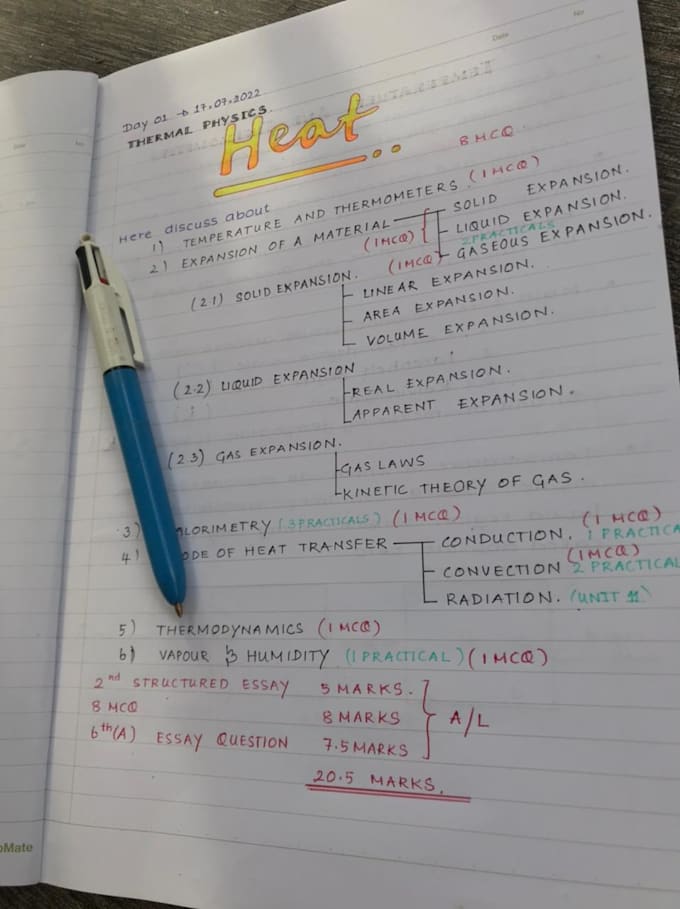 Date
No
Day 01 → 17.07.2022
THERMAL PHYSICS.
Heat
8 MCQ
Here discuss about
1) TEMPERATURE AND THERMOMETERS. (1 MCQ)
2) EXPANSION OF A MATERIAL SOLID EXPANSION.
(1MCQ) LIQUID EXPANSION.
2 PRACTICALS
(1MCQ) GASEOUS EXPANSION.
(2.1) SOLID EXPANSION.
LINEAR EXPANSION.
AREA EXPANSION.
VOLUME EXPANSION.
(2.2) LIQUID EXPANSION
REAL EXPANSION.
APPARENT EXPANSION.
(2.3) GAS EXPANSION.
GAS LAWS
KINETIC THEORY OF GAS.
3) ALORIMETRY (3 PRACTICALS) (1 MCQ)
4) ODE OF HEAT TRANSFER CONDUCTION. (1 MCQ) 1 PRACTICA
CONVECTION (1MCQ) 2 PRACTICAL
RADIATION. (UNIT 11)
5) THERMODYNAMICS (1 MCQ)
6) VAPOUR & HUMIDITY (1 PRACTICAL) (1 MCQ)
2nd STRUCTURED ESSAY 5 MARKS.
8 MCQ 8 MARKS A/L
6th(A) ESSAY QUESTION 7.5 MARKS
20.5 MARKS.
oMate